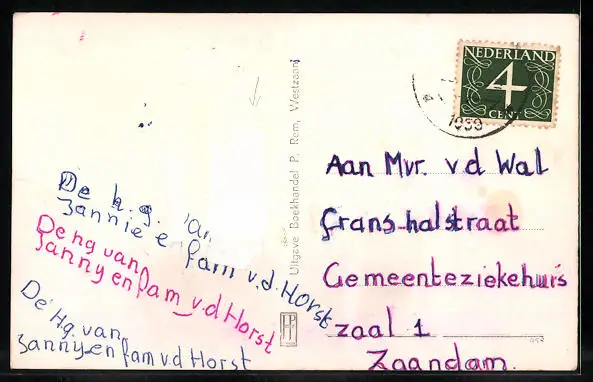 De h.g. van
Jannie en fam v.d. Horst
De hg van
Janny en fam v.d Horst
De Hg. van
Janny en fam v.d Horst
Uitgave Boekhandel P. Rem, Westzaan
NEDERLAND
4
CENT
1959
Aan Mvr. v d Wal
Frans halstraat
Gemeenteziekehuis
zaal 1
Zaandam.